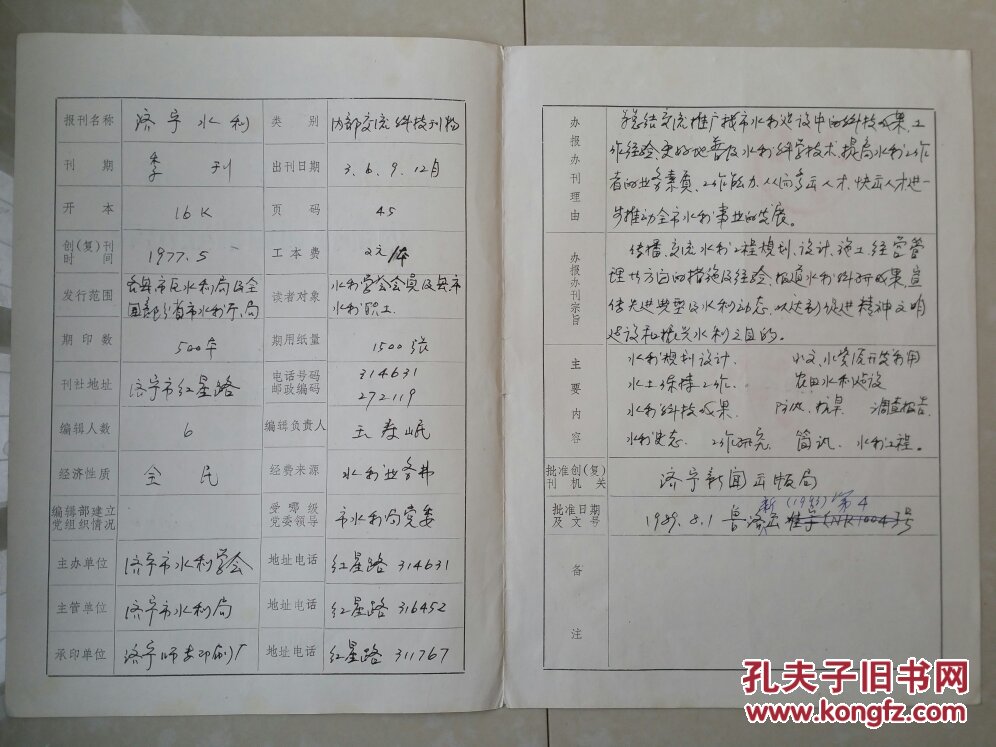 报刊名称 济宁水利 类别 内部交流科技刊物
刊期 季刊 出刊日期 3.6.9.12月
开本 16K 页码 45
创(复)刊时间 1977.5 工本费 2元/本
发行范围 各县市区水利局及全国部分省市水利厅、局 读者对象 水利学会会员及县市水利职工
期印数 500本 期用纸量 1500张
刊社地址 济宁市红星路 电话号码 314631 邮政编码 272119
编辑人数 6 编辑负责人 王寿岷
经济性质 全民 经费来源 水利业务费
编辑部建立党组织情况 受哪级党委领导 市水利局党委
主办单位 济宁市水利学会 地址电话 红星路 314631
主管单位 济宁市水利局 地址电话 红星路 316452
承印单位 济宁师专印刷厂 地址电话 红星路 311767
办报办刊理由
为总结交流推广我市水利建设中的科技成果、工
作经验,更好地普及水利科学技术,提高水利工作
者的业务素质、工作能力,从而多出人才、快出人才,进一
步推动全市水利事业的发展。
办报办刊宗旨
传播、交流水利工程规划、设计、施工、经营管
理等方面的措施及经验,报道水利科研成果,宣
传先进典型及水利动态,以达到促进精神文明
建设和振兴水利之目的。
主要内容
水利规划设计. 水文、水资源开发利用
水土保持工作. 农田水利建设
水利科技成果. 防汛、抗旱 调查报告.
水利史志. 工作研究. 简讯. 水利工程.
批准创(复)刊机关 济宁新闻出版局
批准日期及文号 1989.8.1 鲁济新 第4号
备注
孔夫子旧书网
www.kongfz.com